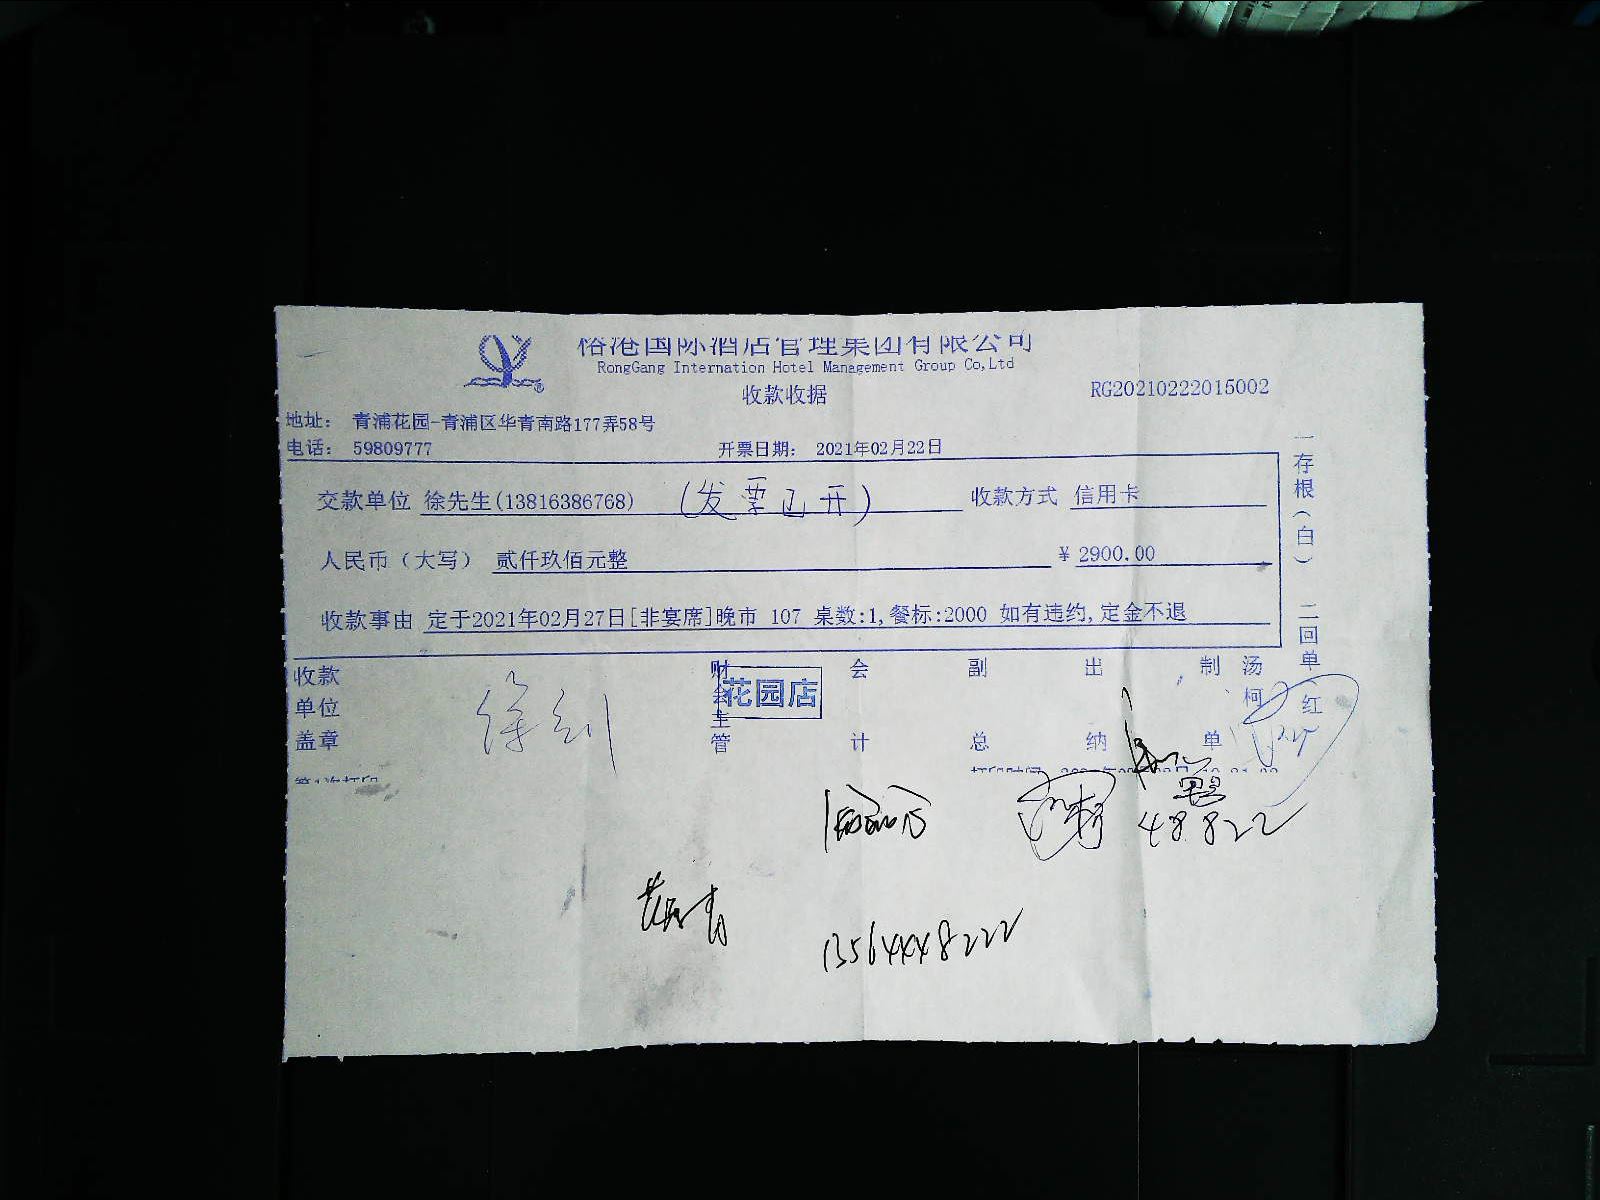 裕港国际酒店管理集团有限公司
RongGang Internation Hotel Management Group Co,Ltd
收款收据
RG20210222015002
地址: 青浦花园-青浦区华青南路177弄58号
电话: 59809777 开票日期: 2021年02月22日
交款单位 徐先生(13816386768) (发票已开) 收款方式 信用卡
人民币(大写) 贰仟玖佰元整 ¥2900.00
收款事由 定于2021年02月27日[非宴席]晚市 107 桌数:1,餐标:2000 如有违约,定金不退
一存根(白) 二回单(红)
收款单位盖章
财会主管 会计 副总 出纳 制单 汤柯
花园店
48822
13564448222